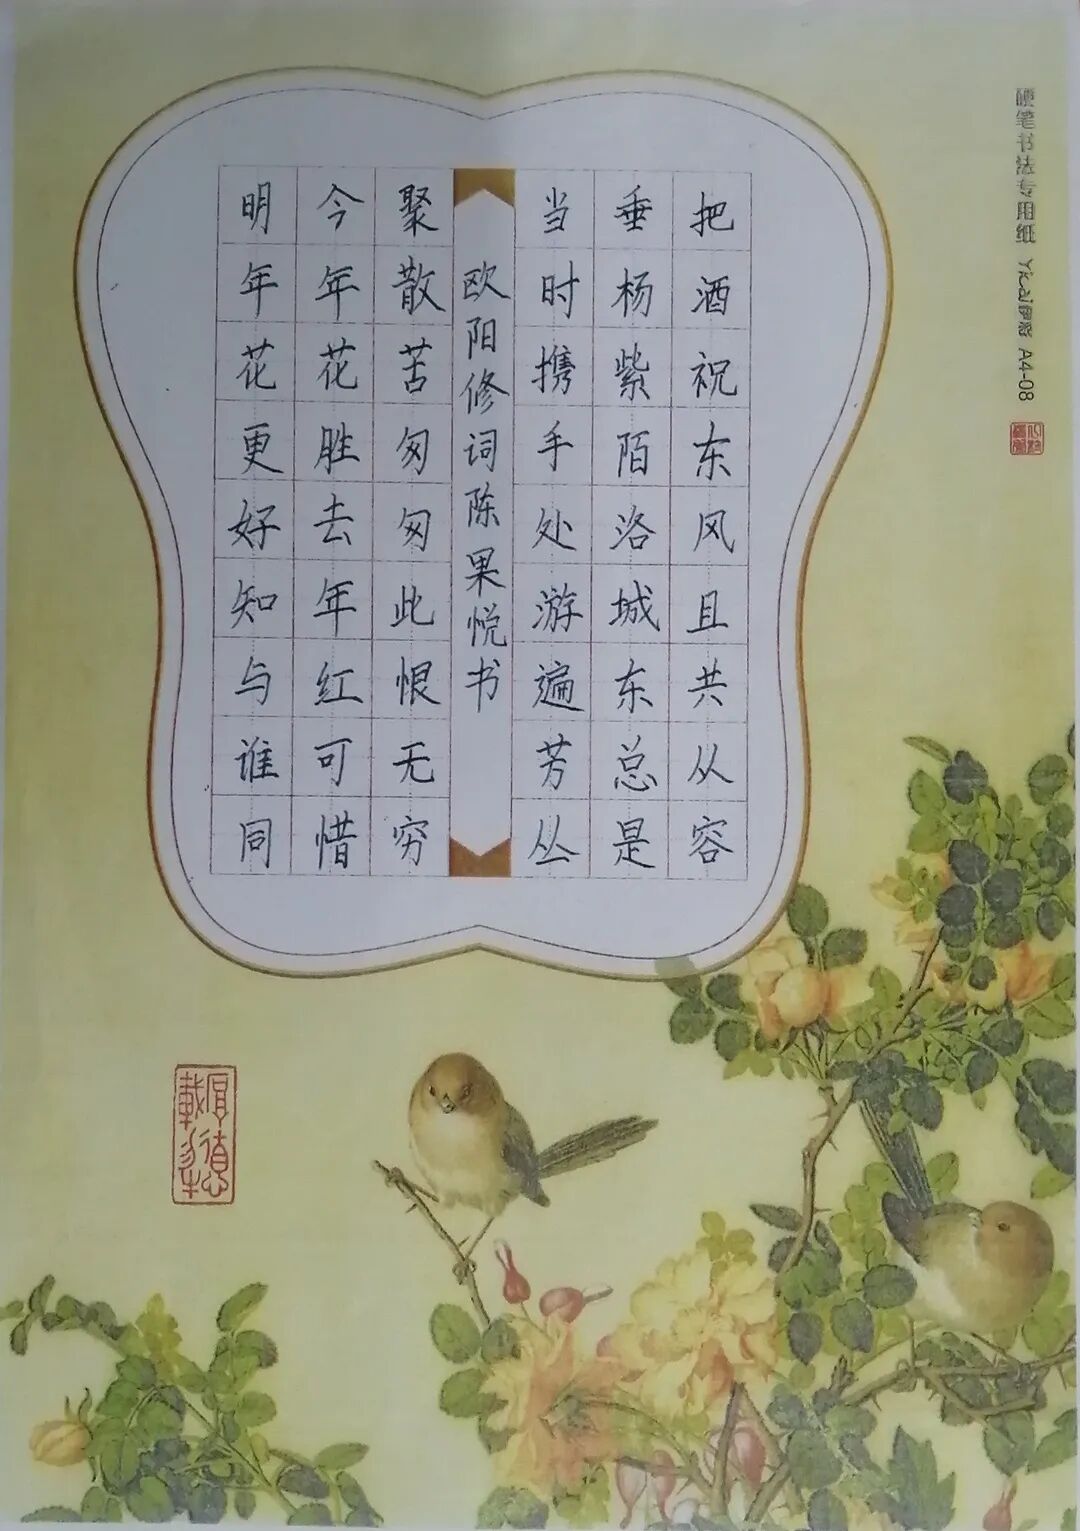 把酒祝东风且共从容
垂杨紫陌洛城东总是
当时携手处游遍芳丛
欧阳修词陈果悦书
聚散苦匆匆此恨无穷
今年花胜去年红可惜
明年花更好知与谁同
硬笔书法专用纸
A4-08
厚德載物